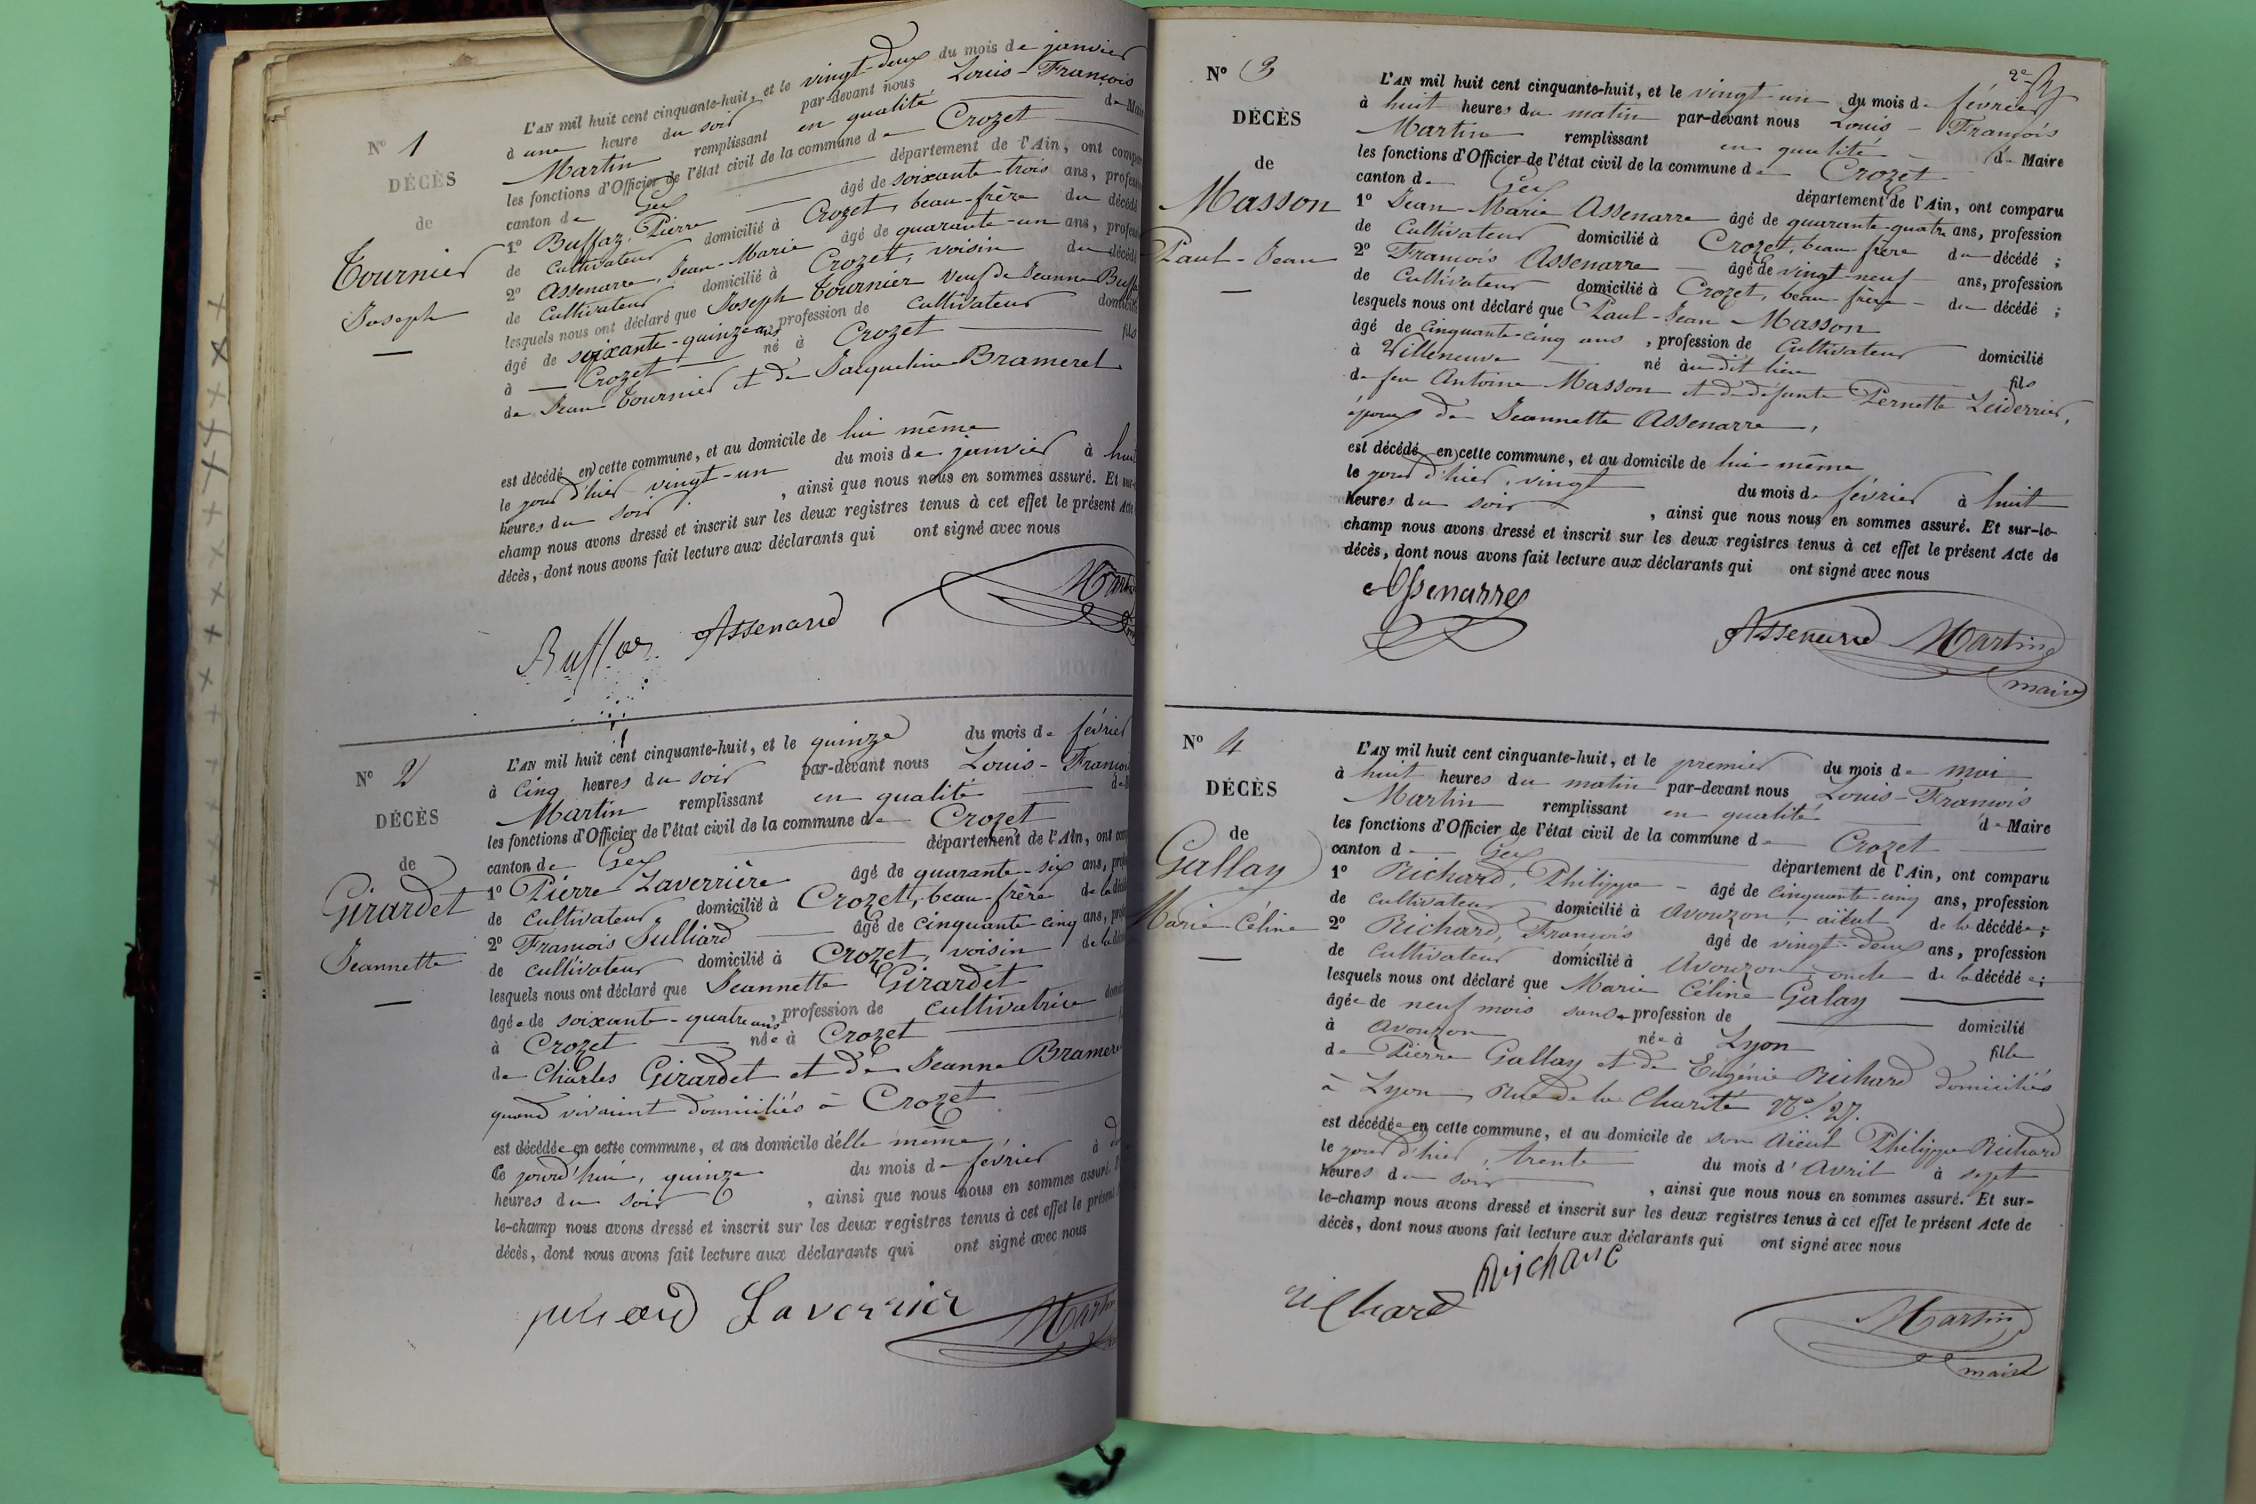 N° 1
DÉCÈS
de
Tournier
Joseph
L'AN mil huit cent cinquante-huit, et le vingt-deux du mois de janvier
à une heure du soir par-devant nous Louis-François
Martin remplissant en qualité de Mai
les fonctions d'Officier de l'état civil de la commune de Crozet
canton de Gex département de l'Ain, ont compa
1° Buffaz, Pierre âgé de soixante trois ans, profess
de cultivateur domicilié à Crozet, beau-frère du décédé
2° Assenarre, Jean-Marie âgé de quarante-un ans, profess
de cultivateur domicilié à Crozet, voisin du décédé
lesquels nous ont déclaré que Joseph Tournier veuf de Jeanne Buffa
âgé de soixante-quinze ans, profession de cultivateur domicilié
à Crozet né à Crozet fils
de Jean Tournier et de Jacqueline Brameret
est décédé en cette commune, et au domicile de lui même
le jour d'hier vingt-un du mois de janvier à huit
heures du soir, ainsi que nous nous en sommes assuré. Et sur-
champ nous avons dressé et inscrit sur les deux registres tenus à cet effet le présent Acte
décès, dont nous avons fait lecture aux déclarants qui ont signé avec nous
Buffaz Assenard Martin
N° 2
DÉCÈS
de
Girardet
Jeannette
L'AN mil huit cent cinquante-huit, et le quinze du mois de février
à cinq heures du soir par-devant nous Louis-François
Martin remplissant en qualité de M
les fonctions d'Officier de l'état civil de la commune de Crozet
canton de Gex département de l'Ain, ont comp
1° Pierre Laverrière âgé de quarante-six ans, profe
de cultivateur domicilié à Crozet, beau-frère de la décéd
2° François Julliard âgé de cinquante cinq ans, profe
de cultivateur domicilié à Crozet, voisin de la décéd
lesquels nous ont déclaré que Jeannette Girardet
âgée de soixante-quatre ans, profession de cultivatrice domici
à Crozet née à Crozet
de Charles Girardet et de Jeanne Bramere
quand vivaient domiciliés à Crozet
est décédée en cette commune, et au domicile d'elle même,
ce jourd'hui, quinze du mois de février à d
heures du soir, ainsi que nous nous en sommes assuré. E
le-champ nous avons dressé et inscrit sur les deux registres tenus à cet effet le présent
décès, dont nous avons fait lecture aux déclarants qui ont signé avec nous
Laverrier Martin
2e
N° 3
DÉCÈS
de
Masson
Paul-Jean
L'AN mil huit cent cinquante-huit, et le vingt-un du mois de février
à huit heures du matin par-devant nous Louis-François
Martin remplissant en qualité de Maire
les fonctions d'Officier de l'état civil de la commune de Crozet
canton de Gex département de l'Ain, ont comparu
1° Jean-Marie Assenarre âgé de quarante-quatre ans, profession
de Cultivateur domicilié à Crozet, beau frère du décédé ;
2° François Assenarre âgé de vingt-neuf ans, profession
de Cultivateur domicilié à Crozet, beau-frère du décédé ;
lesquels nous ont déclaré que Paul-Jean Masson
âgé de cinquante-cinq ans, profession de Cultivateur domicilié
à Villeneuve né au dit lieu fils
de feu Antoine Masson et de défunte Pernette Leiderrier,
époux de Jeannette Assenarre,
est décédé en cette commune, et au domicile de lui même
le jour d'hier, vingt du mois de février à huit
heures du soir, ainsi que nous nous en sommes assuré. Et sur-le-
champ nous avons dressé et inscrit sur les deux registres tenus à cet effet le présent Acte de
décès, dont nous avons fait lecture aux déclarants qui ont signé avec nous
Assenarre
Assenard Martin
maire
N° 4
DÉCÈS
de
Gallay
Marie-Céline
L'AN mil huit cent cinquante-huit, et le premier du mois de mai
à huit heures du matin par-devant nous Louis-François
Martin remplissant en qualité de Maire
les fonctions d'Officier de l'état civil de la commune de Crozet
canton de Gex département de l'Ain, ont comparu
1° Richard, Philippe âgé de cinquante-cinq ans, profession
de cultivateur domicilié à Avouzon, aïeul de la décédée ;
2° Richard, François âgé de vingt-deux ans, profession
de cultivateur domicilié à Avouzon, oncle de la décédée ;
lesquels nous ont déclaré que Marie Céline Galay
âgée de neuf mois sans profession de domicilié
à Avouzon née à Lyon fille
de Pierre Gallay et de Eugénie Richard domiciliés
à Lyon, Rue de la Charité N° 27.
est décédée en cette commune, et au domicile de son aïeul Philippe Richard
le jour d'hier, trente du mois d'Avril à sept
heures du soir, ainsi que nous nous en sommes assuré. Et sur-
le-champ nous avons dressé et inscrit sur les deux registres tenus à cet effet le présent Acte de
décès, dont nous avons fait lecture aux déclarants qui ont signé avec nous
richard Richard
Martin
maire